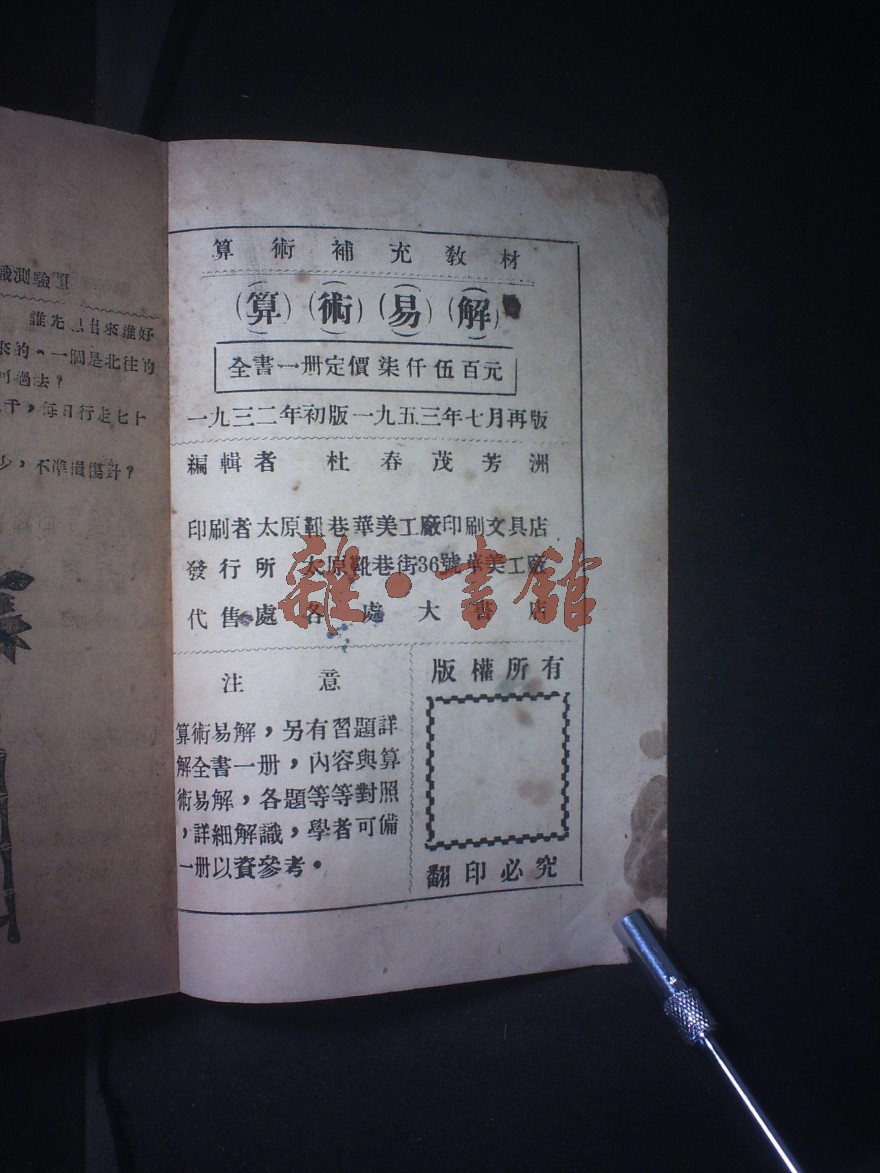 識測驗題
誰先出來誰好
來的。一個是北往的
何過法？
千，每日行走七十
少，不準損傷針？
算術補充教材
(算)(術)(易)(解)
全書一册定價柒仟伍百元
一九三二年初版一九五三年七月再版
編輯者 杜春茂芳洲
印刷者太原靴巷華美工廠印刷文具店
發行所 太原靴巷街36號華美工廠
代售處各處大書店
雜·書館
注意
算術易解，另有習題詳
解全書一册，內容與算
術易解，各題等等對照
，詳細解識，學者可備
一册以資參考。
版權所有
翻印必究